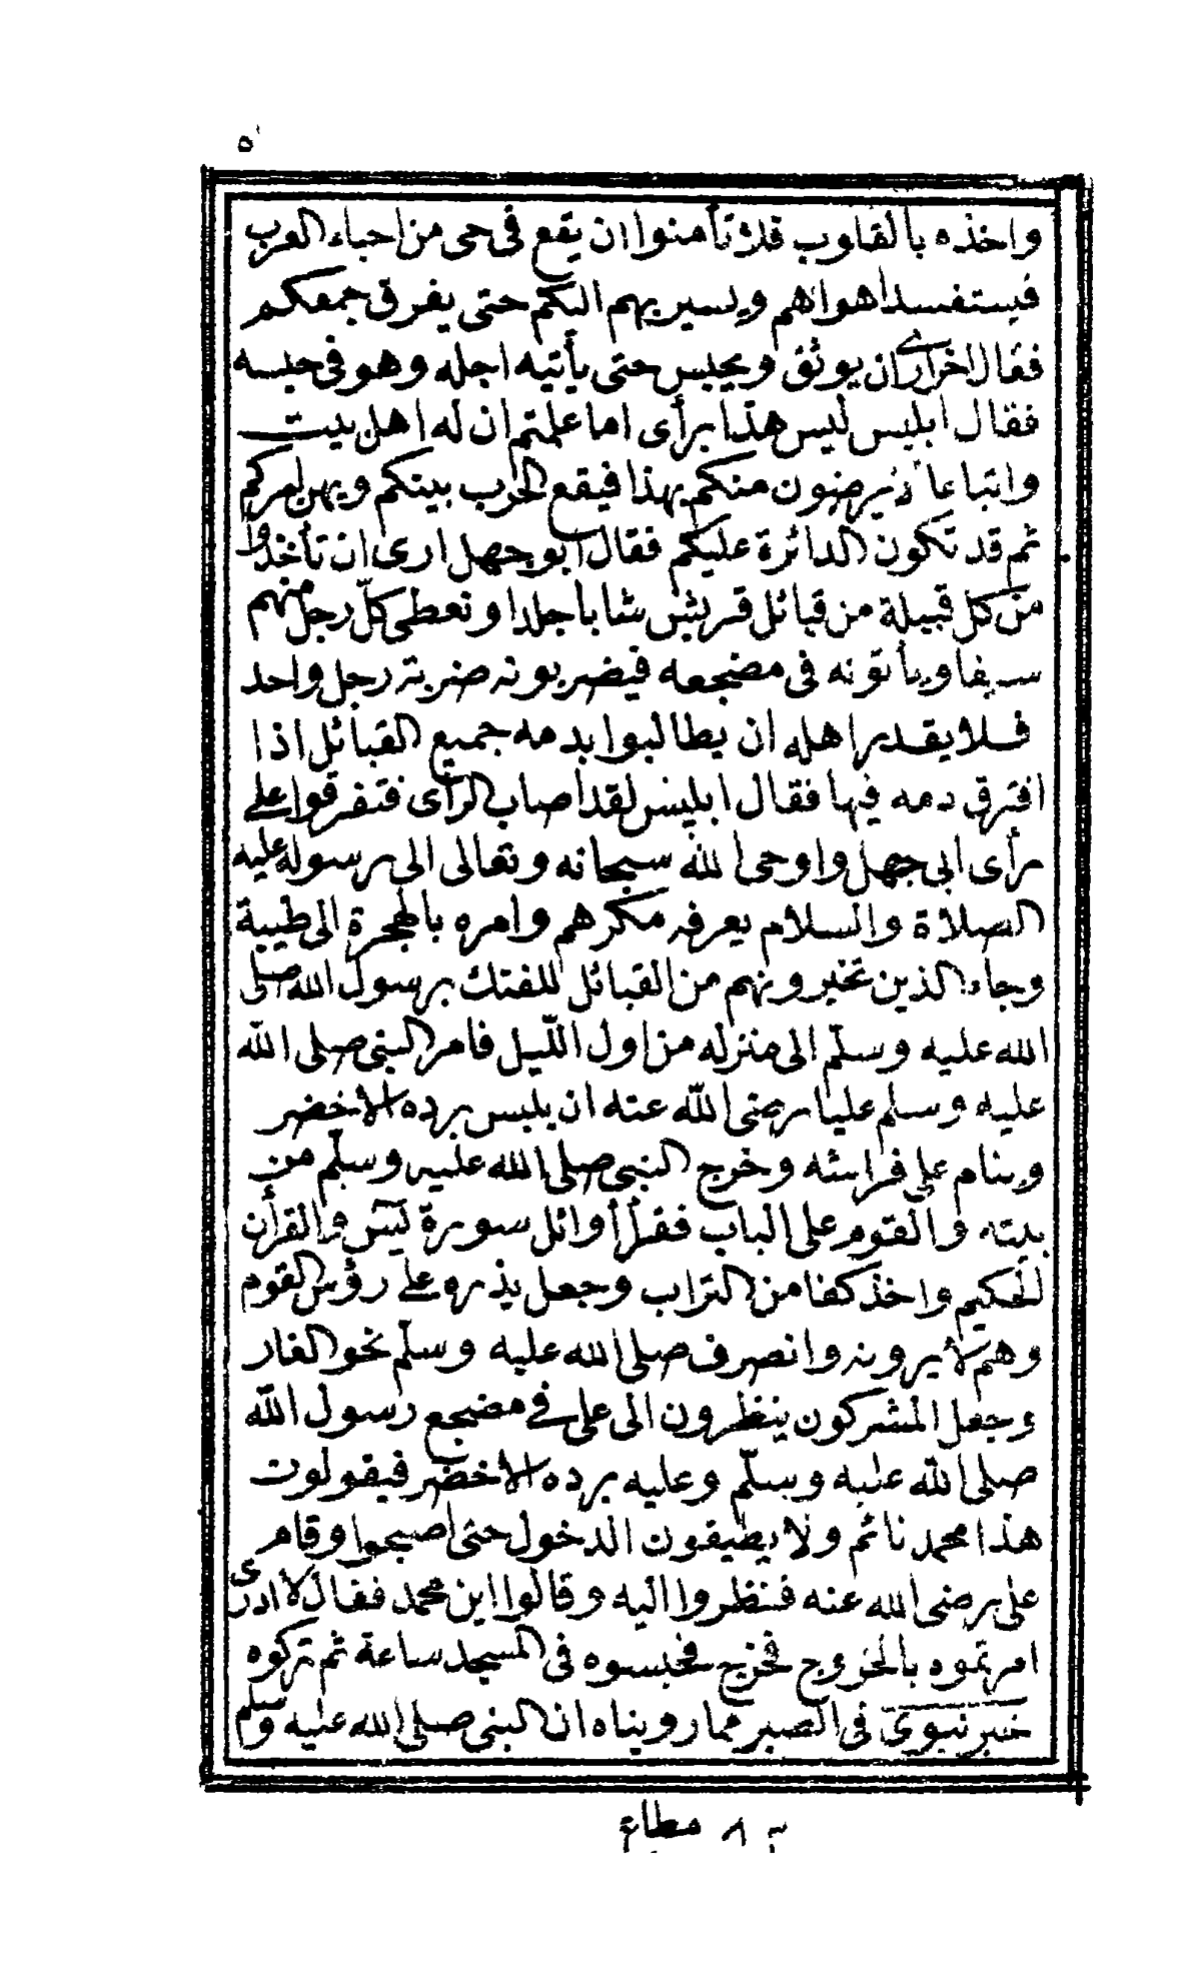 ٥
واخذه بالقلوب فلا تأمنوا ان يقع فى حى من احياء العرب
فيستفسد اهواهم ويسير بهم اليكم حتى يفرق جمعكم
فقال اخر ارى ان يوثق ويحبس حتى يأتيه اجله وهو فى حبسه
فقال ابليس ليس هذا برأى اما علمتم ان له اهل بيت
واتباعا لا يرضون منكم بهذا فيقع الحرب بينكم ويهن امركم
ثم قد تكون الدائرة عليكم فقال ابو جهل ارى ان تأخذوا
من كل قبيلة من قبائل قريش شابا جلدا وتعطى كلّ رجل منهم
سيفا ويأتونه فى مضجعه فيضربونه ضربة رجل واحد
فلا يقدر اهله ان يطالبوا بدمه جميع القبائل اذا
افترق دمه فيها فقال ابليس لقد اصاب الرأى فتفرقوا على
رأى ابى جهل واوحى الله سبحانه وتعالى الى رسوله عليه
الصلاة والسلام يعرفه مكرهم وامره بالهجرة الى طيبة
وجاء الذين تخيرونهم من القبائل للفتك برسول الله صلى
الله عليه وسلّم الى منزله من اول اللّيل فامر النبى صلى الله
عليه وسلم عليا رضى الله عنه ان يلبس برده الاخضر
وينام على فراشه وخرج النبى صلى الله عليه وسلّم من
بيته والقوم على الباب فقرأ أوائل سورة يسٓ والقرأن
الحكيم واخذ كفا من التراب وجعل يذره على رؤس القوم
وهم لا يرونه وانصرف صلى الله عليه وسلّم نحو الغار
وجعل المشركون ينظرون الى على فى مضجع رسول الله
صلى الله عليه وسلّم وعليه برده الاخضر فيقولون
هذا محمد نائم ولا يطيقون الدخول حتى اصبحوا وقام
على رضى الله عنه فنظروا اليه وقالوا اين محمد فقال لا ادرى
امرتموه بالخروج فخرج فحبسوه فى المسجد ساعة ثم تركوه
خبر نبوى فى الصبر مما رويناه ان النبى صلى الله عليه وسلم
مطاع